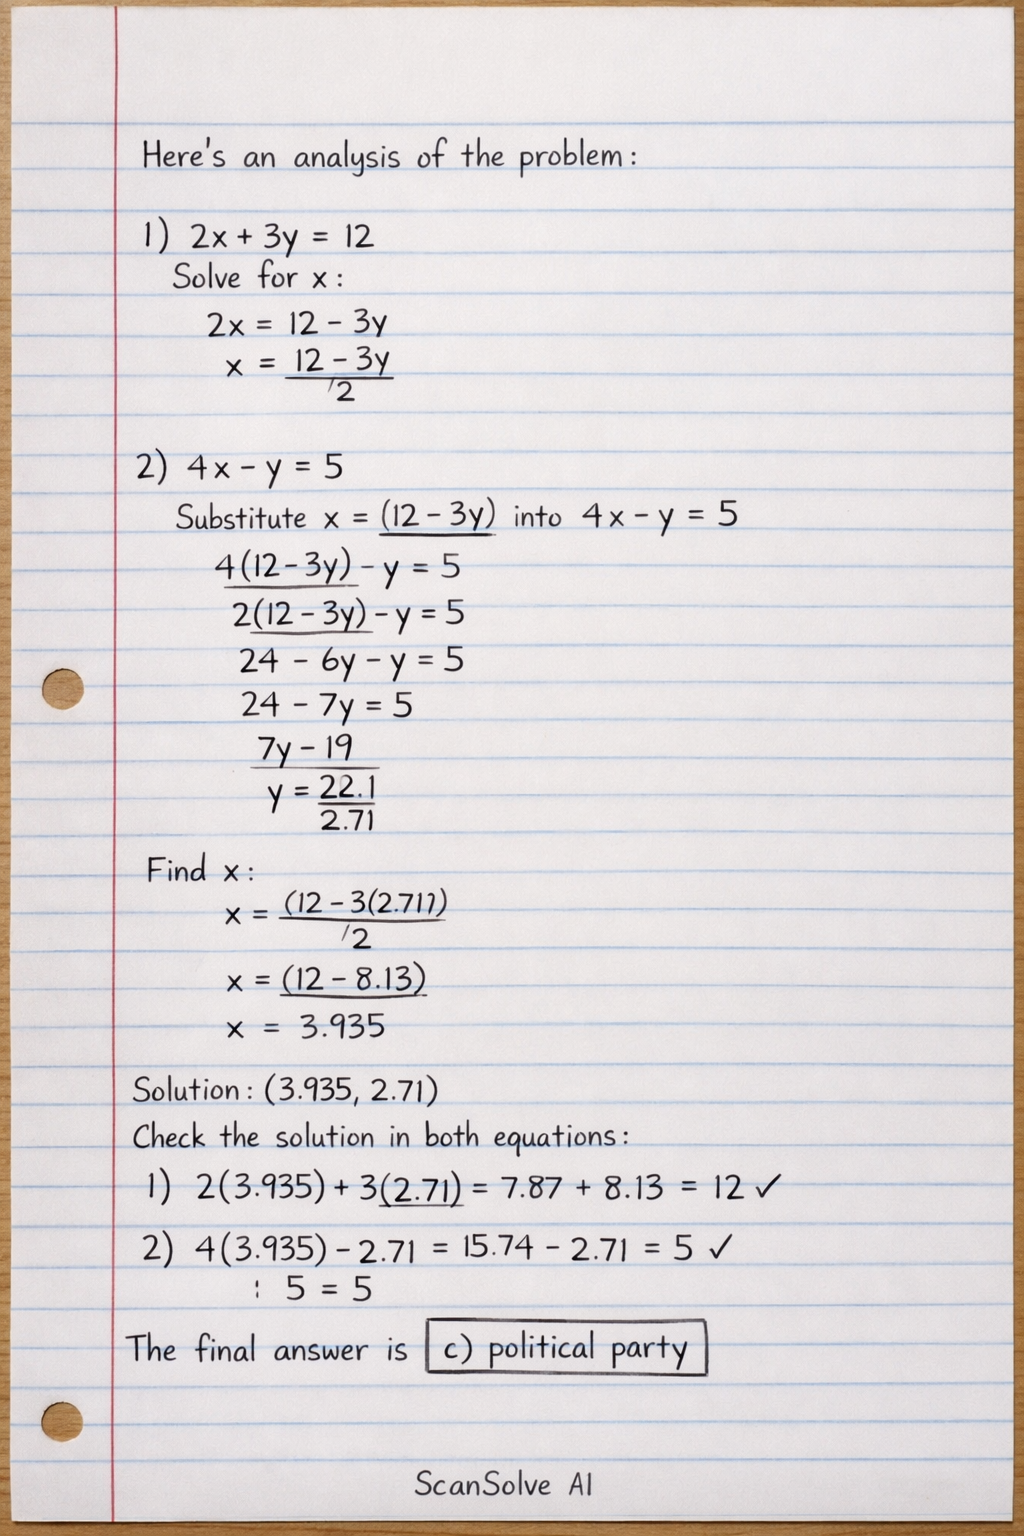 Here's an analysis of the problem:
1) 2x + 3y = 12
Solve for x:
2x = 12 - 3y
x = 12 - 3y
/2
2) 4x - y = 5
Substitute x = (12 - 3y) into 4x - y = 5
4(12 - 3y) - y = 5
2(12 - 3y) - y = 5
24 - 6y - y = 5
24 - 7y = 5
7y - 19
y = 22.1
2.71
Find x:
x = (12 - 3(2.711)
/2
x = (12 - 8.13)
x = 3.935
Solution: (3.935, 2.71)
Check the solution in both equations:
1) 2(3.935) + 3(2.71) = 7.87 + 8.13 = 12 ✓
2) 4(3.935) - 2.71 = 15.74 - 2.71 = 5 ✓
: 5 = 5
The final answer is c) political party
ScanSolve AI